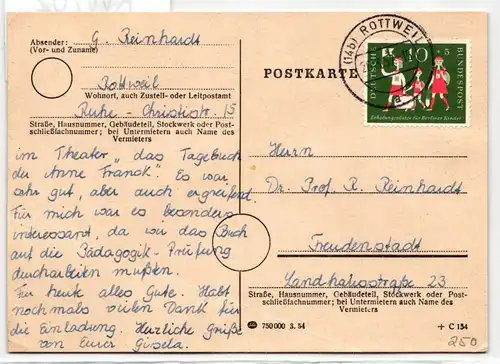 Absender:
(Vor- und Zuname)
G. Reinhardt
Rottweil
Wohnort, auch Zustell- oder Leitpostamt
Ruhe-Christistr 15
Straße, Hausnummer, Gebäudeteil, Stockwerk oder Post-
schließfachnummer; bei Untermietern auch Name des
Vermieters
im Theater „das Tagebuch
der Anne Franck". Es war
sehr gut, aber auch ergreifend.
Für mich war es besonders
interessant, da wir das Buch
auf die Pädagogik-Prüfung
durcharbeiten mußten.
Für heute alles Gute. Habt
nochmals vielen Dank für
die Einladung. Herzliche Grüße
von Eurer Gisela.
POSTKARTE
(14b) ROTTWEIL
a
DEUTSCHE
10 + 5
BUNDESPOST
Erholungsplätze für Berliner Kinder
Herrn
Dr. Prof R. Reinhardt
Freudenstadt
Landhausstraße 23
Straße, Hausnummer, Gebäudeteil, Stockwerk oder Post-
schließfachnummer; bei Untermietern auch Name des
Vermieters
750 000 3. 54
+ C 154
250